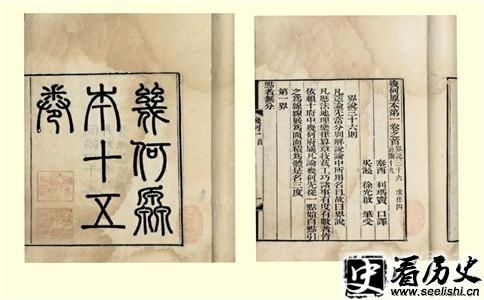 幾何原
本十五
卷
幾何原本第一卷之首 界說三十六 求作四
公論十九
泰西 利瑪竇 口譯
吳淞 徐光啟 筆受
界說三十六則
凡造論先當分別解說論中所用名目故曰界說
凡歷法地理樂律算章技藝工巧諸事有度有數者皆
依賴十府中幾何府屬凡論幾何先從一點始自點引
之爲線線展爲面面積爲體是名三度
第一界
點者無分
史 看历史
www.seelishi.cn